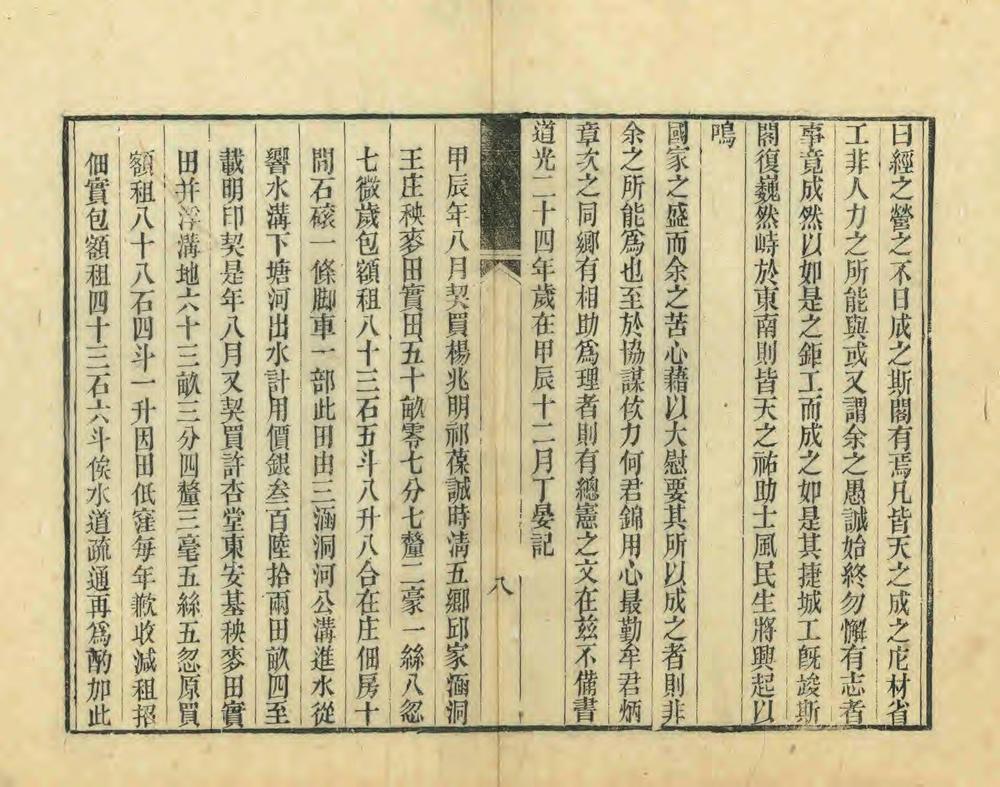 曰經之營之不日成之斯閣有焉凡皆天之成之庀材省
工非人力之所能與或又謂余之愚誠始終勿懈有志者
事竟成然以如是之鉅工而成之如是其捷城工旣竣斯
閣復巍然峙於東南則皆天之祐助士風民生將興起以
鳴
國家之盛而余之苦心藉以大慰要其所以成之者則非
余之所能爲也至於協謀佽力何君錦用心最勤牟君炳
章次之同鄉有相助爲理者則有總憲之文在茲不備書
道光二十四年歲在甲辰十二月丁晏記
八
甲辰年八月契買楊兆明祁葆誠時淸五鄉邱家涵洞
王庄秧麥田實田五十畝零七分七釐二豪一絲八忽
七微歲包額租八十三石五斗八升八合在庄佃房十
間石磙一條脚車一部此田由三涵洞河公溝進水從
響水溝下塘河出水計用價銀叁百陸拾兩田畝四至
載明印契是年八月又契買許杏堂東安基秧麥田實
田并浮溝地六十三畝三分四釐三毫五絲五忽原買
額租八十八石四斗一升因田低窪每年歉收減租招
佃實包額租四十三石六斗俟水道疏通再爲酌加此